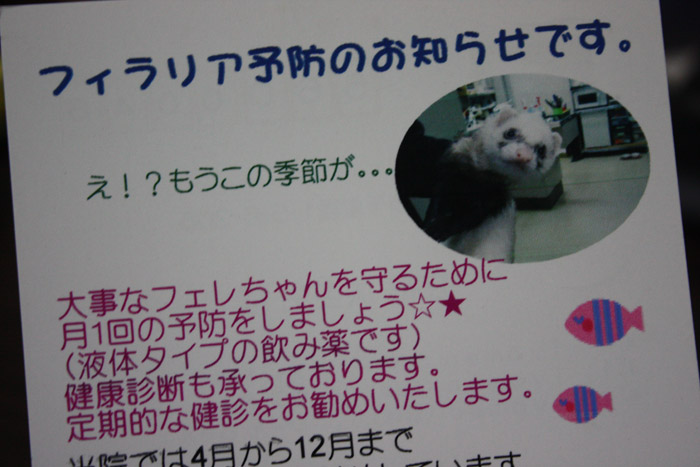 フィラリア予防のお知らせです。
え！？もうこの季節が。。。
大事なフェレちゃんを守るために
月1回の予防をしましょう☆★
（液体タイプの飲み薬です）
健康診断も承っております。
定期的な健診をお勧めいたします。
当院では4月から12月まで